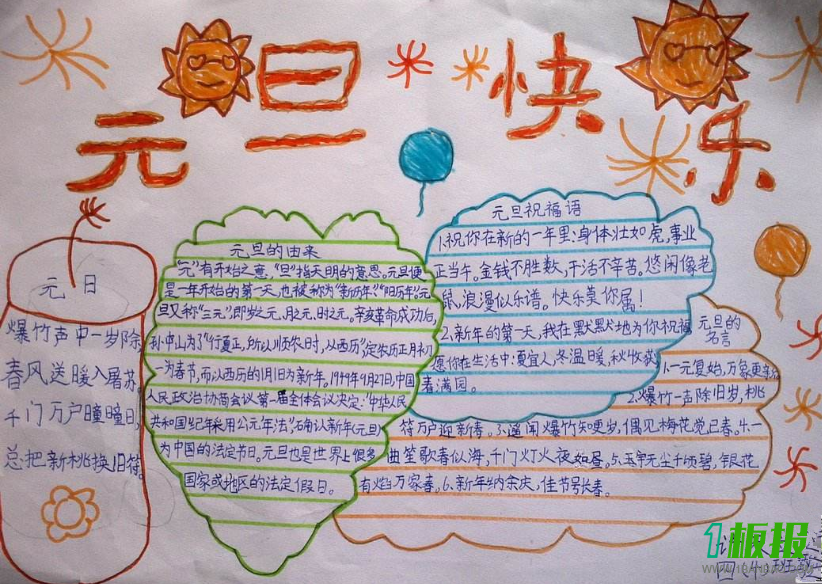 元旦快乐
元日
爆竹声中一岁除
春风送暖入屠苏
千门万户曈曈日
总把新桃换旧符
元旦的由来
"元"有开始之意,"旦"指天明的意思。元旦便
是一年开始的第一天,也被称为"新历年""阳历年"。元
旦又称"三元",即岁之元、月之元、时之元。辛亥革命成功后,
孙中山为了"行夏正,所以顺农时,从西历",定农历正月初
一为春节,而以西历的1月1日为新年。1949年9月27日,中国
人民政治协商会议第一届全体会议决定:"中华人民
共和国纪年采用公元年法",确认新年(元旦)
为中国的法定节日。元旦也是世界上很多
国家或地区的法定假日。
元旦祝福语
1.祝你在新的一年里:身体壮如虎,事业
正当午。金钱不胜数,干活不辛苦。悠闲像老
鼠,浪漫似乐谱。快乐美你属!
2.新年的第一天,我在默默地为你祝福
愿你在生活中:夏宜人,冬温暖,秋收获
春满园。
元旦的
名言
1.一元复始,万象更
2.爆竹一声除旧岁,桃
符万户迎新春。3.遥闻爆竹知更岁,偶见梅花觉已春。4.一
曲笙歌春似海,千门灯火夜如昼。5.玉宇无尘千顷碧,银花
有焰万家春。6.新年纳余庆,佳节号长春。
1板报
班